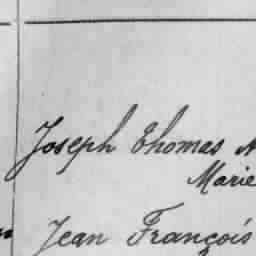 Joseph Thomas
Marie
Jean François